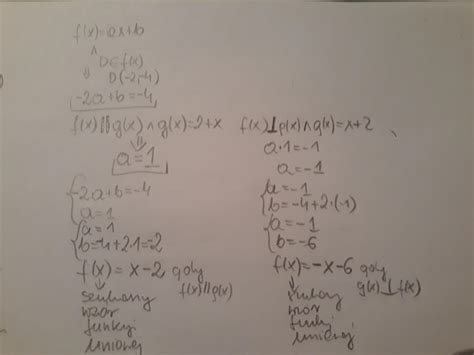 f(x)=ax+b
∧
D∈f(x)
⇓ D(-2,-4)
-2a+b=-4
f(x)∥g(x) ∧ g(x)=2+x
⇓
a=1
{-2a+b=-4
a=1
{a=1
b=-4+2·1=-2
f(x)=x-2 gdy
f(x)∥g(x)
↓
szukany
wzór
funkcji
liniowej
f(x)⊥p(x)∧g(x)=x+2
a·1=-1
a=-1
{a=-1
b=-4+2·(-1)
{a=-1
b=-6
f(x)=-x-6 gdy
g(x)⊥f(x)
↓
szukany
wzór
funkcji
liniowej